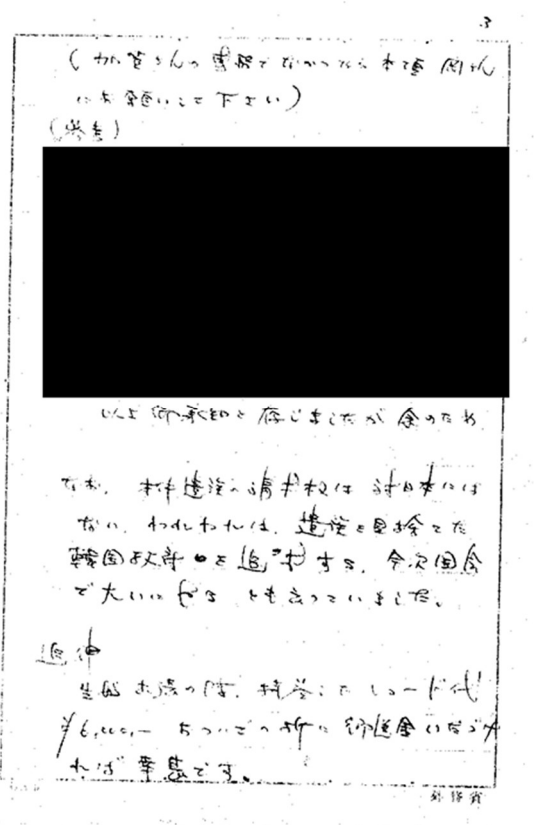 3
(加賀さんの書類でなかったら本项 岡さん
にお願いして下さい)
(参考)
以上 御承知と存じましたが 念のため
なお、本件遺族の請求权は 対日本には
ない、われわれは、遺族を見捨てた
韓国政府を追求する、今次国会
で大いにやる とも言っていました。
追伸
お渡の際、持参した レコード代
¥6,000,- おついでの折に 御送金いただけ
れば幸甚です。
外務省